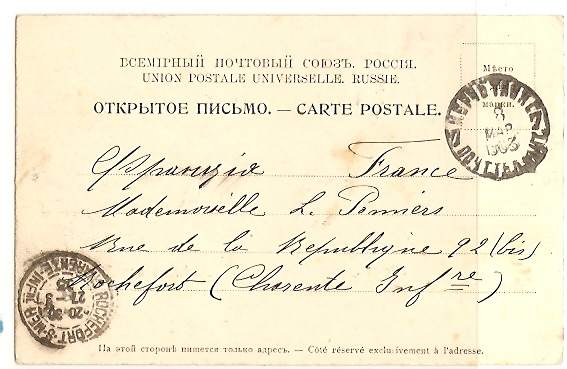 ВСЕМІРНЫЙ ПОЧТОВЫЙ СОЮЗЪ. РОССІЯ.
UNION POSTALE UNIVERSELLE. RUSSIE.
Мѣсто
марки.
ОТКРЫТОЕ ПИСЬМО. — CARTE POSTALE.
8
МАР
1903
Франція France
Mademoiselle L. Pomiers
Rue de la République 92 (bis)
Rochefort (Charente Infre)
ROCHEFORT-S-MER
20-30
На этой сторонѣ пишется только адресъ. — Côté réservé exclusivement à l'adresse.